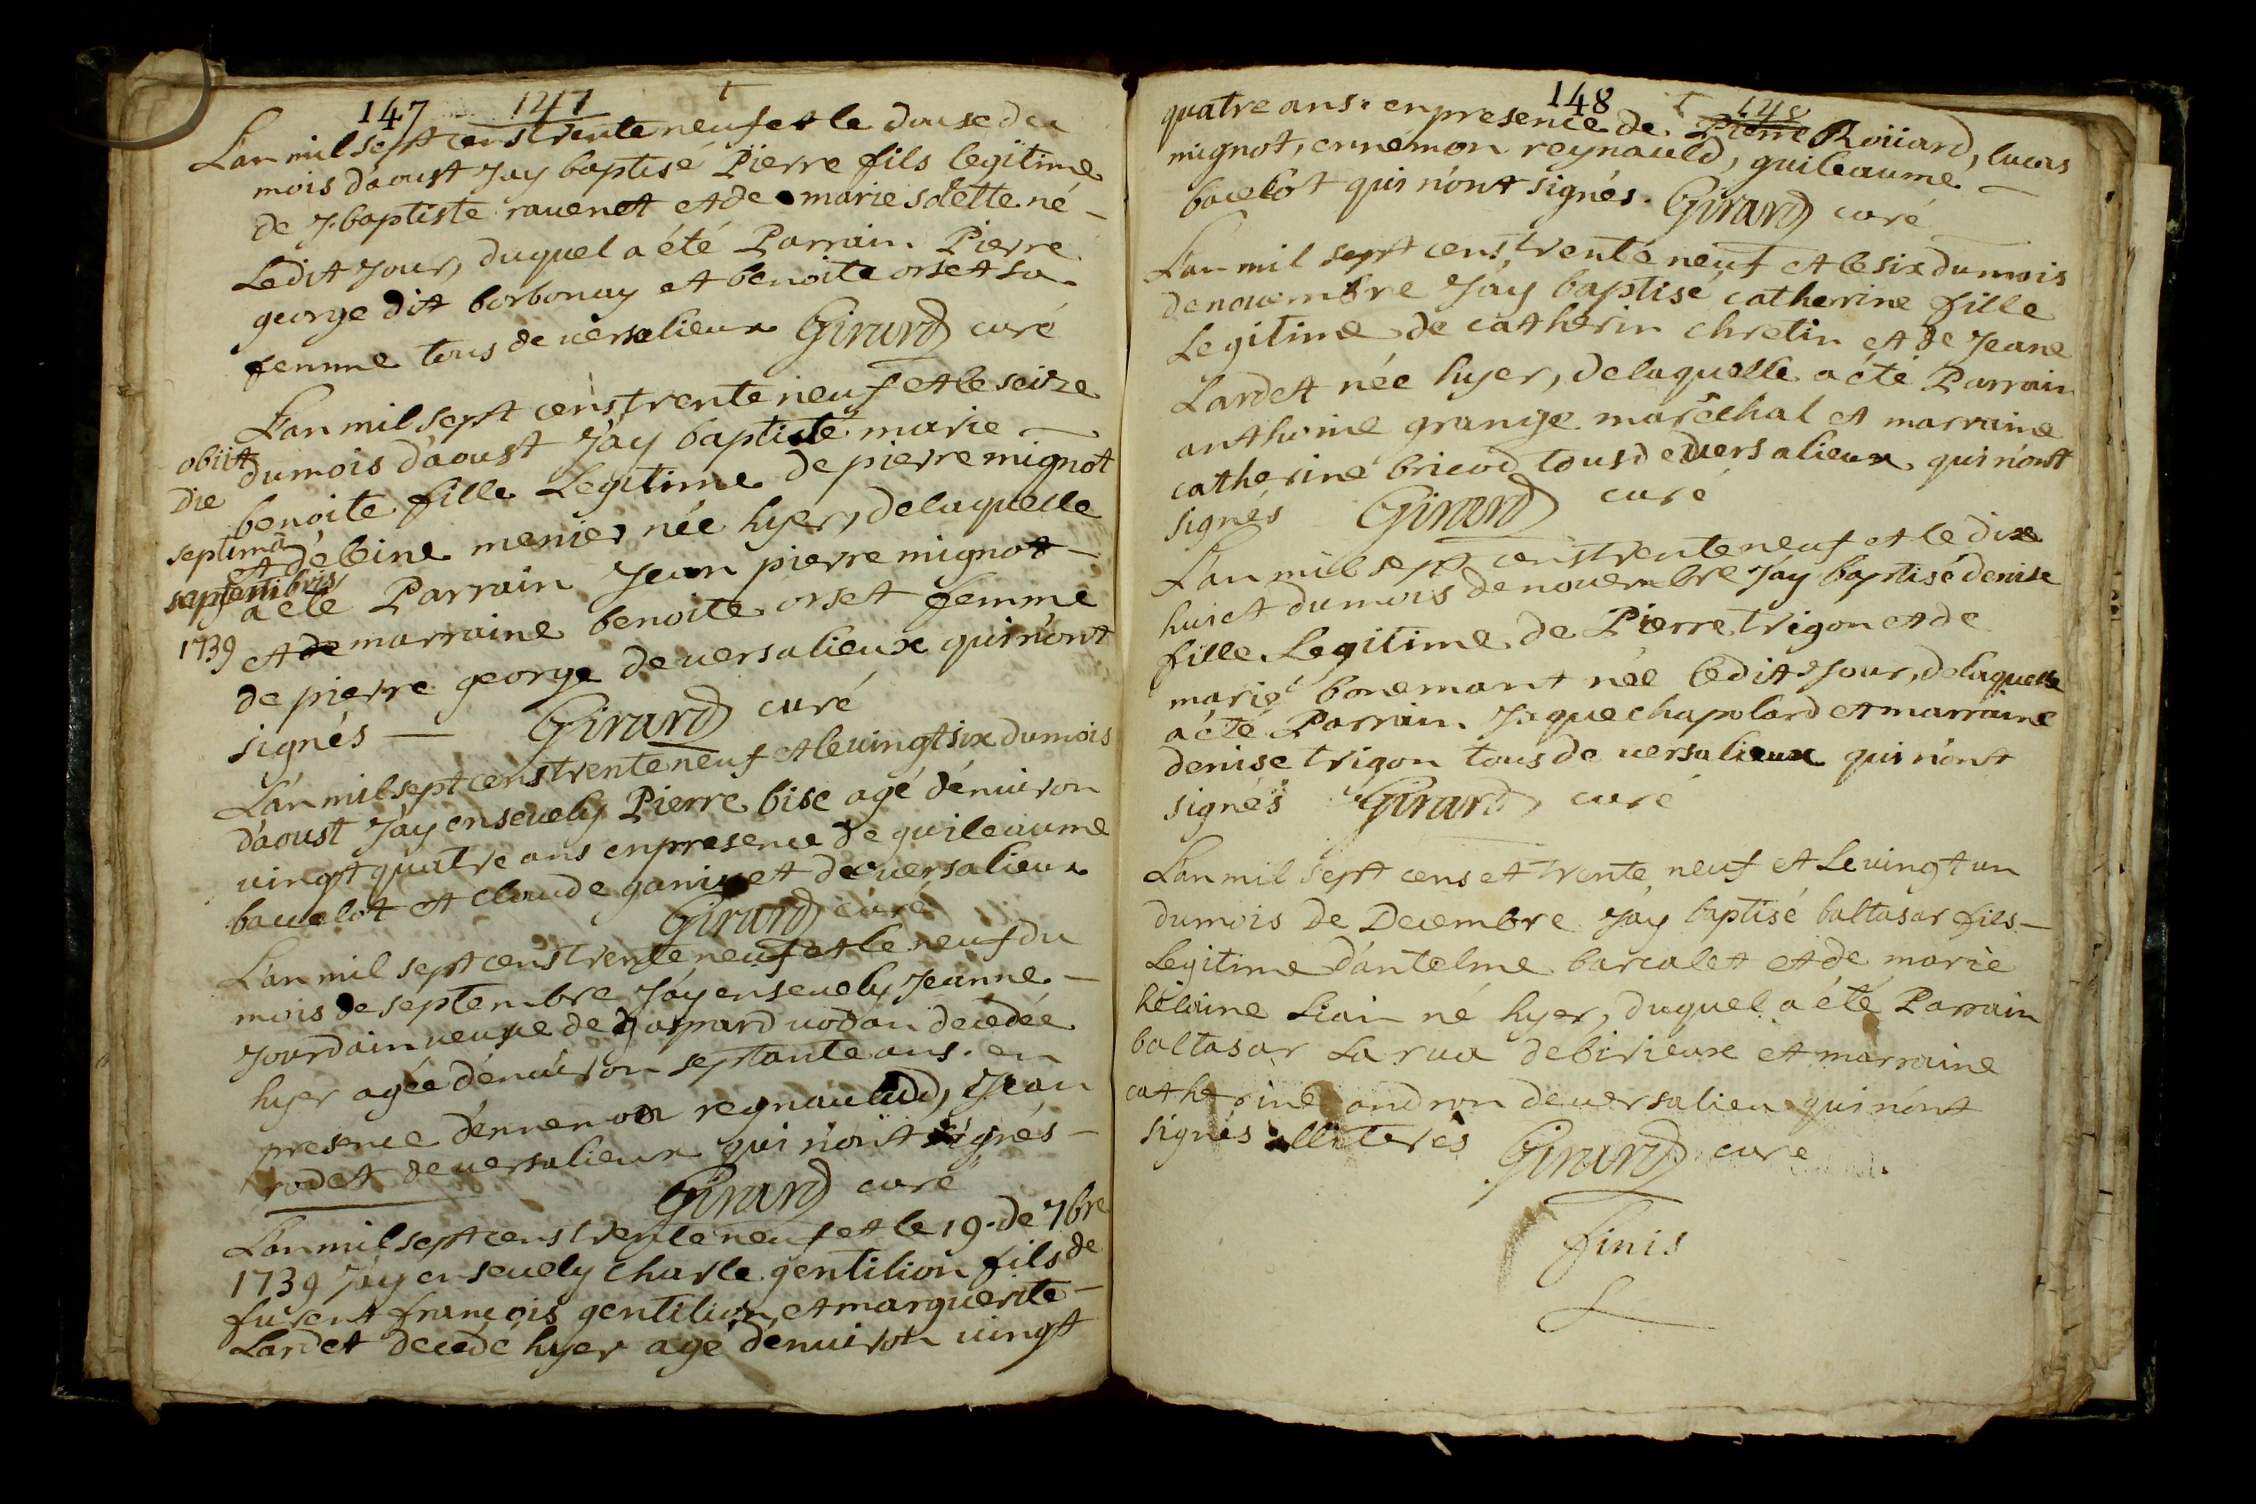 147 147
L'an mil sept cens trente neuf et le douse du
mois d'aoust J'ay baptisé Pierre fils legitime
de J. baptiste rauenet et de marie solette né
Ledit Jour, duquel a été Parrain Pierre
george dit borbonay et benoite orset sa
femme tous de uersalieux Girard curé
L'an mil sept cens trente neuf et le seize
dumois d'aoust J'ay baptisé marie
benoite fille Legitime de pierre mignot
et de leine menier née hyer, delaquelle
a été Parrain Jean pierre mignot
et de marraine benoite orset femme
de pierre george de uersalieux qui n'ont
signés Girard curé
obiit
Die
septima
septembris
1739
L'an mil sept cens trente neuf et le uingt six dumois
d'aoust J'ay enseuely Pierre bise agé d'enuiron
uingt quatre ans en presence de guileaume
bacelot et Claude ganivet de uersalieux
Girard curé
L'an mil sept cens trente neuf et le neuf du
mois de septembre J'ay enseuely Jeanne
Jourdain ueuve de gaspard uodan decedée
hyer agée d'enuiron septante ans. en
presence d'ennemon regnauldd, Jean
rodet de uersalieux qui n'ont signés
Girard curé
L'an mil sept cens trente neuf et le 19. de 7bre
1739 J'ay enseuely charle gentilion fils de
furent francois gentilion et marguerite
Lardet decedé hyer agé d'enuiron uingt
148 148
quatre ans. en presence de Pierre Roüiard, lucas
mignot, ennémon reynauld, guileaume
bacelot qui n'ont signés. Girard curé
L'an mil sept cens trente neuf et le six dumois
de nouembre J'ay baptisé catherine fille
Legitime de catherin chretin et de Jeane
Lardet née hyer, delaquelle a été Parrain
anthoine grange maréchal et marraine
catherine bricod tous de uersalieux qui n'ont
signés Girard curé
L'an mil sept cens trente neuf et le dix
huict dumois de nouembre J'ay baptisé denise
fille Legitime de Pierre trigon et de
marie bonemant née ledit Jour, delaquelle
a été Parrain Jaque chapolard et marraine
denise trigon tous de uersalieux qui n'ont
signés Girard curé
L'an mil sept cens et trente neuf et Le uingt un
dumois de Decembre J'ay baptisé baltasar fils
Legitime d'antelme barcalet et de marie
heleine Liain né hyer, duquel a été Parrain
baltasar La rua de birieux et marraine
catherine andron de uersalieu qui n'ont
signés illiterés Girard curé
finis